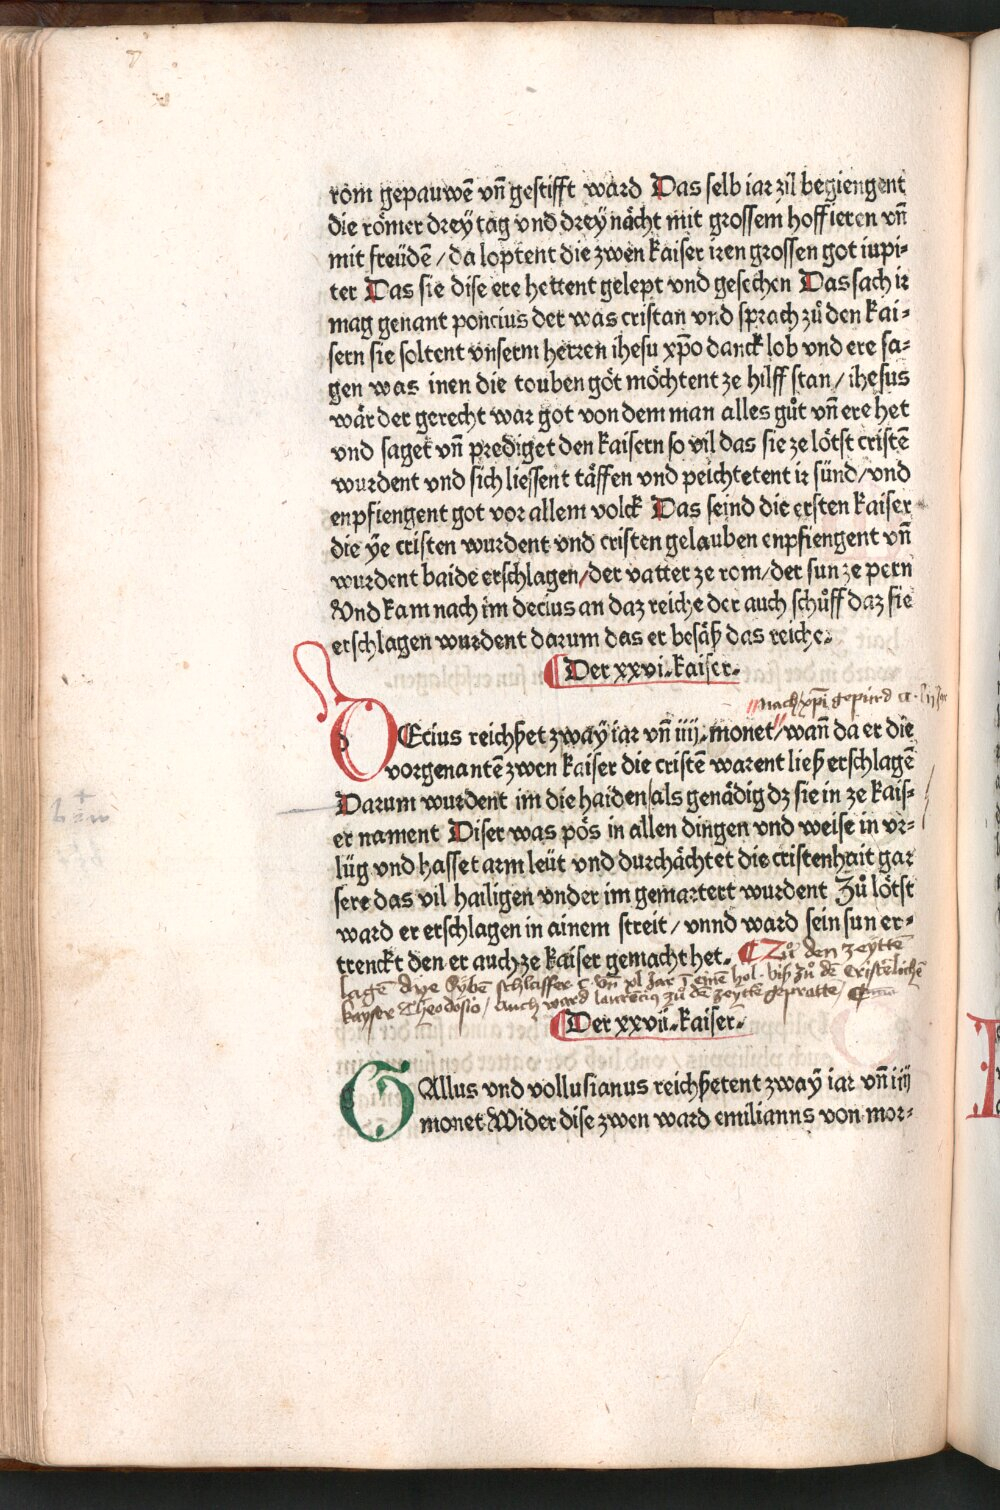 rom gepauwē vn̄ gestifft ward Das selb iar zil begiengent
die römer drey tag vnd drey nächt mit grossem hoffieren vn̄
mit freüdē / da loptent die zwen kaiser iren grossen got iupi-
ter Das sie dise ere hettent gelept vnd gesechen Das sach ir
mag genant poncius der was cristan vnd sprach zů den kai-
sern sie soltent vnserm herren ihesu xp̄o danck lob vnd ere sa-
gen was inen die touben göt möchtent ze hilff stan / ihesus
wär der gerecht war got von dem man alles gůt vn̄ ere het
vnd saget vn̄ prediget den kaisern so vil das sie ze lötst cristē
wurdent vnd sich liessent täffen vnd peichtetent ir sünd / vnd
enpfiengent got vor allem volck Das seind die ersten kaiser
die ÿe cristen wurdent vnd cristen gelauben enpfiengent vn̄
wurdent baide erschlagen / der vatter ze rom / der sun ze pern
Vnd kam nach im decius an daz reiche der auch schůff daz sie
erschlagen wurdent darum das er besäß das reiche.
Der xxvi. kaiser.
nach xp̄i gepurd
DEcius reichßet zwaÿ iar vn̄ iiij. monet / wan̄ da er die
vorgenantē zwen kaiser die cristē warent ließ erschlagē
Darum wurdent im die haiden als genädig dz sie in ze kais-
er nament Diser was pös in allen dingen vnd weise in vr-
lüg vnd hasset arm leüt vnd durchächtet die cristenhait gar
sere das vil hailigen vnder im gemartert wurdent Zů lötst
ward er erschlagen in ainem streit / vnnd ward sein sun er-
trenckt den er auch ze kaiser gemacht het. Zů den zeyttē
lagē dye sybē schlaffer c vn̄ xl Jar ī einē hol. biß zů dē Cristēlichē
kayser Theodosio / Auch ward laurēcius zů dē zeyttē gepratte /
Der xxvii. kaiser.
GAllus vnd vollusianus reichßetent zwaÿ iar vn̄ iiij
monet Wider dise zwen ward emilianns von mor-